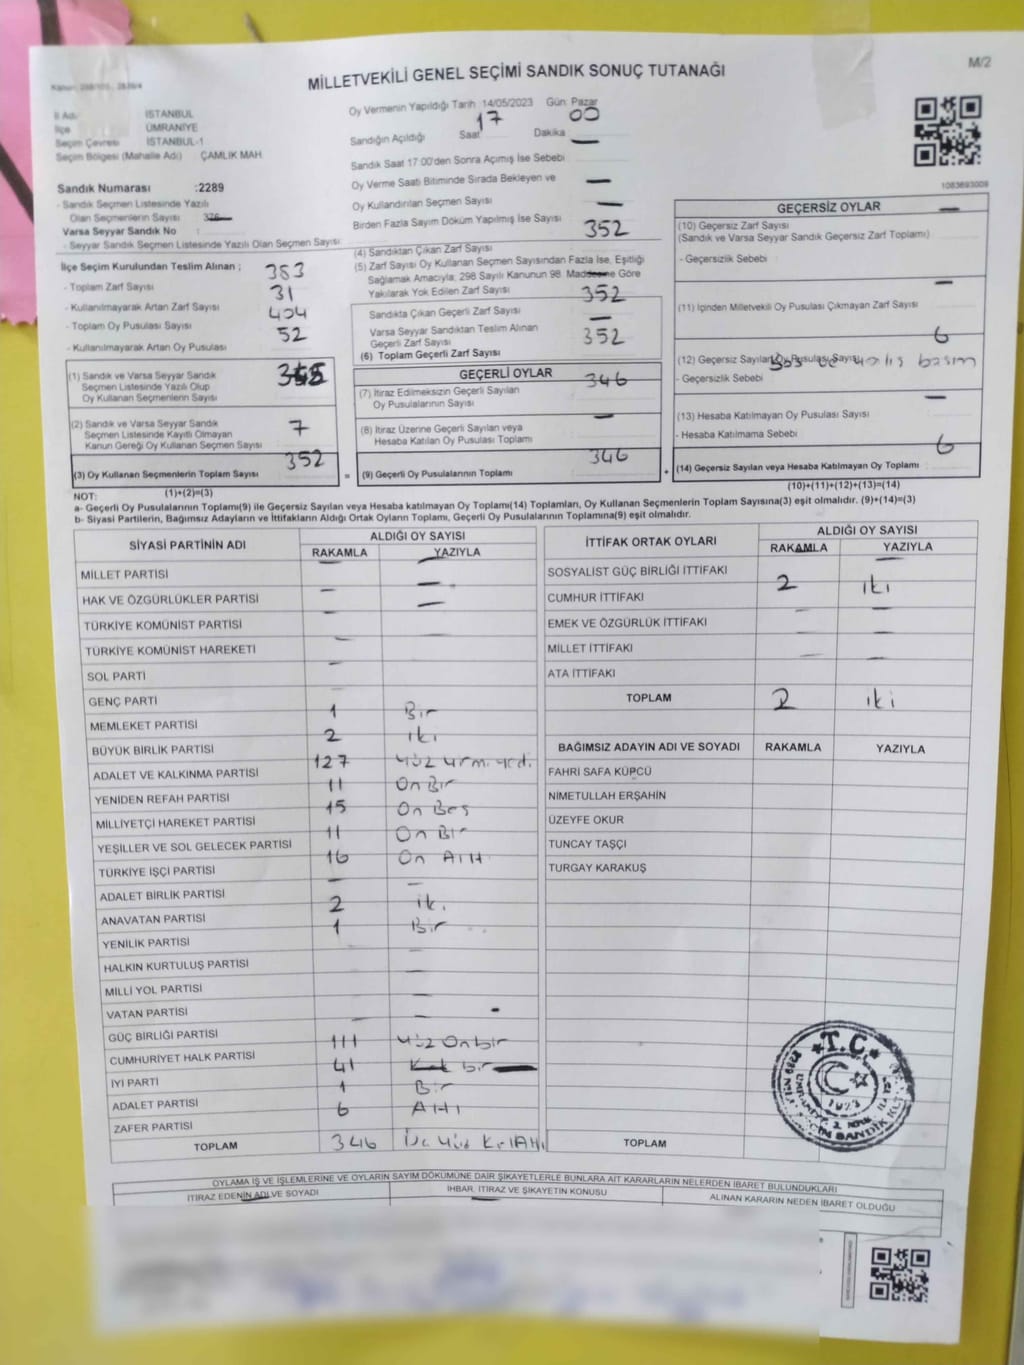 M/2
MİLLETVEKİLİ GENEL SEÇİMİ SANDIK SONUÇ TUTANAĞI
İl Adı İSTANBUL
İlçe ÜMRANİYE
Seçim Çevresi İSTANBUL-1
Seçim Bölgesi (Mahalle Adı) ÇAMLIK MAH.
Sandık Numarası :2289
- Sandık Seçmen Listesinde Yazılı
Olan Seçmenlerin Sayısı
Varsa Seyyar Sandık No :
- Seyyar Sandık Seçmen Listesinde Yazılı Olan Seçmen Sayısı
İlçe Seçim Kurulundan Teslim Alınan ;
- Toplam Zarf Sayısı 383
- Kullanılmayarak Artan Zarf Sayısı 31
- Toplam Oy Pusulası Sayısı 404
- Kullanılmayarak Artan Oy Pusulası 52
(1) Sandık ve Varsa Seyyar Sandık
Seçmen Listesinde Yazılı Olup
Oy Kullanan Seçmenlerin Sayısı
(2) Sandık ve Varsa Seyyar Sandık
Seçmen Listesinde Kayıtlı Olmayan
Kanun Gereği Oy Kullanan Seçmen Sayısı 7
(3) Oy Kullanan Seçmenlerin Toplam Sayısı 352
(1)+(2)=(3)
Oy Vermenin Yapıldığı Tarih 14/05/2023 Gün Pazar
Sandığın Açıldığı Saat 17 Dakika 00
Sandık Saat 17:00'den Sonra Açımış İse Sebebi —
Oy Verme Saati Bitiminde Sırada Bekleyen ve
Oy Kullandırılan Seçmen Sayısı —
Birden Fazla Sayım Döküm Yapılmış İse Sayısı —
(4) Sandıktan Çıkan Zarf Sayısı 352
(5) Zarf Sayısı Oy Kullanan Seçmen Sayısından Fazla İse, Eşitliği
Sağlamak Amacıyla, 298 Sayılı Kanunun 98. Maddesine Göre
Yakılarak Yok Edilen Zarf Sayısı —
Sandıkta Çıkan Geçerli Zarf Sayısı 352
Varsa Seyyar Sandıktan Teslim Alınan
Geçerli Zarf Sayısı —
(6) Toplam Geçerli Zarf Sayısı 352
GEÇERLİ OYLAR
(7) İtiraz Edilmeksizin Geçerli Sayılan
Oy Pusulalarının Sayısı 346
(8) İtiraz Üzerine Geçerli Sayılan veya
Hesaba Katılan Oy Pusulası Toplamı —
= (9) Geçerli Oy Pusulalarının Toplamı 346
1083693009
GEÇERSİZ OYLAR
(10) Geçersiz Zarf Sayısı —
(Sandık ve Varsa Seyyar Sandık Geçersiz Zarf Toplamı)
- Geçersizlik Sebebi
(11) İçinden Milletvekili Oy Pusulası Çıkmayan Zarf Sayısı —
(12) Geçersiz Sayılan Oy Pusulası Sayısı 6
- Geçersizlik Sebebi
(13) Hesaba Katılmayan Oy Pusulası Sayısı —
- Hesaba Katılmama Sebebi
+ (14) Geçersiz Sayılan veya Hesaba Katılmayan Oy Toplamı 6
(10)+(11)+(12)+(13)=(14)
NOT:
a- Geçerli Oy Pusulalarının Toplamı(9) ile Geçersiz Sayılan veya Hesaba katılmayan Oy Toplamı(14) Toplamları, Oy Kullanan Seçmenlerin Toplam Sayısına(3) eşit olmalıdır. (9)+(14)=(3)
b- Siyasi Partilerin, Bağımsız Adayların ve İttifakların Aldığı Ortak Oyların Toplamı, Geçerli Oy Pusulalarının Toplamına(9) eşit olmalıdır.
SİYASİ PARTİNİN ADI ALDIĞI OY SAYISI
RAKAMLA YAZIYLA
MİLLET PARTİSİ — —
HAK VE ÖZGÜRLÜKLER PARTİSİ — —
TÜRKİYE KOMÜNİST PARTİSİ — —
TÜRKİYE KOMÜNİST HAREKETİ — —
SOL PARTİ —
GENÇ PARTİ —
MEMLEKET PARTİSİ 1 Bir
BÜYÜK BİRLİK PARTİSİ 2 iki
ADALET VE KALKINMA PARTİSİ 127 yüz yirmi yedi
YENİDEN REFAH PARTİSİ 11 On Bir
MİLLİYETÇİ HAREKET PARTİSİ 15 On Beş
YEŞİLLER VE SOL GELECEK PARTİSİ 11 On Bir
TÜRKİYE İŞÇİ PARTİSİ 16 On Altı
ADALET BİRLİK PARTİSİ — —
ANAVATAN PARTİSİ 2 iki
YENİLİK PARTİSİ 1 Bir
HALKIN KURTULUŞ PARTİSİ
MİLLİ YOL PARTİSİ —
VATAN PARTİSİ —
GÜÇ BİRLİĞİ PARTİSİ —
CUMHURİYET HALK PARTİSİ 111 yüz On bir
İYİ PARTİ 41 Kırk bir
ADALET PARTİSİ 1 Bir
ZAFER PARTİSİ 6 Altı
TOPLAM 346 Üç Yüz Kırk Altı
İTTİFAK ORTAK OYLARI ALDIĞI OY SAYISI
RAKAMLA YAZIYLA
SOSYALİST GÜÇ BİRLİĞİ İTTİFAKI
CUMHUR İTTİFAKI 2 iki
EMEK VE ÖZGÜRLÜK İTTİFAKI — —
MİLLET İTTİFAKI — —
ATA İTTİFAKI — —
TOPLAM 2 iki
BAĞIMSIZ ADAYIN ADI VE SOYADI RAKAMLA YAZIYLA
FAHRİ SAFA KÜPCÜ
NİMETULLAH ERŞAHİN
ÜZEYFE OKUR
TUNCAY TAŞÇI
TURGAY KARAKUŞ
TOPLAM
T.C.
1923
OYLAMA İŞ VE İŞLEMLERİNE VE OYLARIN SAYIM DÖKÜMÜNE DAİR ŞİKAYETLERLE BUNLARA AİT KARARLARIN NELERDEN İBARET BULUNDUKLARI
İTİRAZ EDENİN ADI VE SOYADI İHBAR, İTİRAZ VE ŞİKAYETİN KONUSU ALINAN KARARIN NEDEN İBARET OLDUĞU